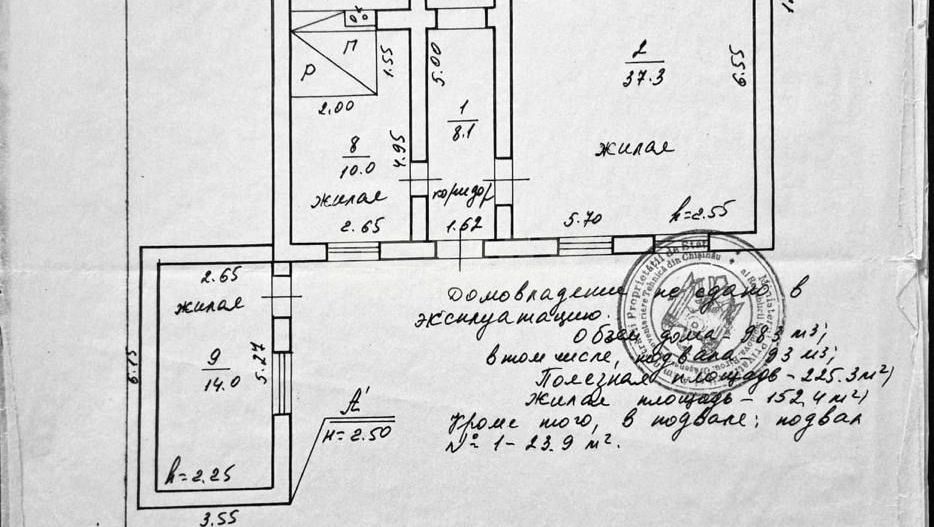 П
Р
1.55
2.00
8
10.0
жилая
4.95
2.65
5.00
1
8.1
коридор
1.62
2
37.3
6.55
жилая
5.70
h=2.55
2.65
жилая
9
14.0
5.27
6.15
h=2.25
3.55
А'
H=2.50
Домовладение не сдано в
эксплуатацию.
Объем дома 983 м3;
в том числе, подвала 93 м3;
Полезная площадь - 225.3 м2;
Жилая площадь - 152,4 м2;
Кроме того, в подвале: подвал
№ 1 - 23.9 м2.